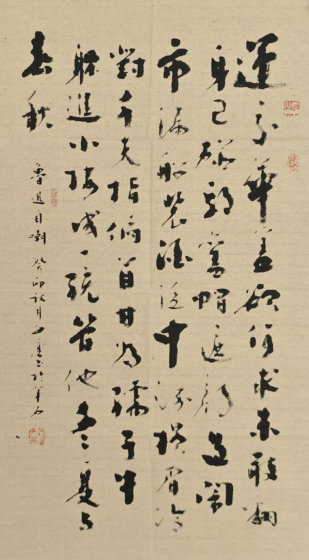 運交華蓋欲何求未敢翻
身已碰頭舊帽遮顏過鬧
市漏船載酒泛中流橫眉冷
對千夫指俯首甘為孺子牛
躲進小樓成一統管他冬夏与
春秋
魯迅自嘲 癸卯秋月